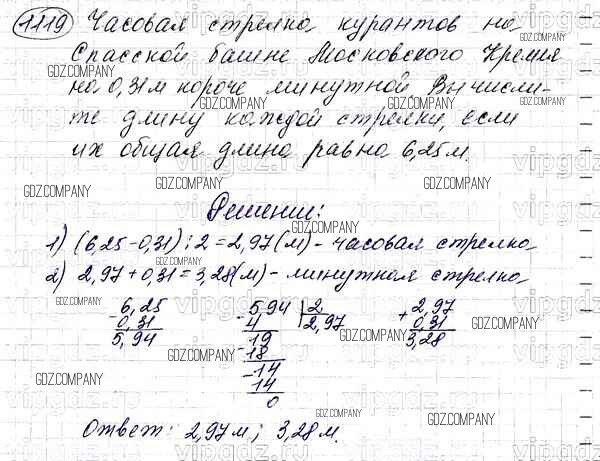 1119 Часовая стрелка курантов на
Спасской башне Московского Кремля
на 0,31м короче минутной Вычисли-
те длину каждой стрелки, если
их общая длина равна 6,25м.
Решение:
1) (6,25-0,31):2=2,97(м)-часовая стрелка
2) 2,97+0,31=3,28(м)-минутная стрелка
- 6,25
0,31
5,94
- 5,94 | 2
4 2,97
- 19
18
- 14
14
0
+ 2,97
0,31
3,28
Ответ: 2,97м; 3,28м.
GDZ.COMPANY
vipgdz.com